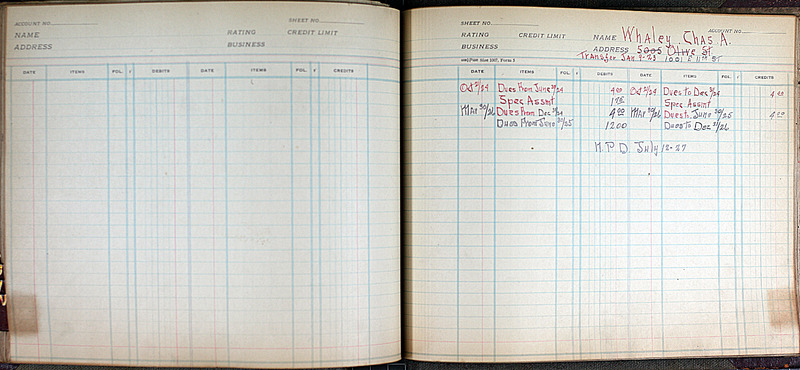 ACCOUNT NO. SHEET NO.
NAME RATING CREDIT LIMIT
ADDRESS BUSINESS
DATE ITEMS FOL. √ DEBITS DATE ITEMS FOL. √ CREDITS
SHEET NO. ACCOUNT NO.
RATING CREDIT LIMIT NAME Whaley Chas A.
BUSINESS ADDRESS 5005 Olive St
Transfer Jan 9-23 1001 E 11th St
DATE ITEMS FOL. √ DEBITS DATE ITEMS FOL. √ CREDITS
Oct 2/24 Dues From June /24 4 00 Oct 2/24 Dues to Dec /24 4 00
Spec Assmt 1 Spec Assmt
Mar 30/26 Dues From Dec /24 4 00 Mar 30/26 Dues to June 30/25 4 00
Dues From June 30/25 12 00 Dues To Dec 31/26
N.P.D July 12-27